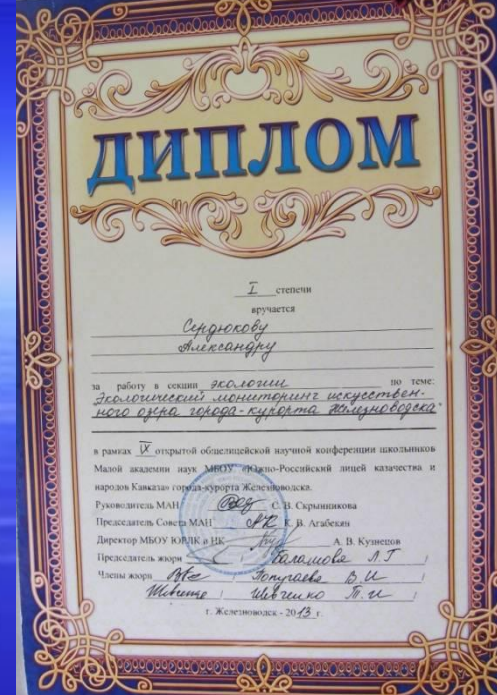 ДИПЛОМ
I степени
вручается
Сердюкову
Александру
за работу в секции экологии по теме:
Экологический мониторинг искусствен-
ного озера города-курорта Железноводска"
в рамках IX открытой общелицейской научной конференции школьников
Малой академии наук МБОУ «Южно-Российский лицей казачества и
народов Кавказа» города-курорта Железноводска.
Руководитель МАН С. В. Скрынникова
Председатель Совета МАН К. В. Агабекян
Директор МБОУ ЮРЛК и НК А. В. Кузнецов
Председатель жюри Балашова Л.Г
Члены жюри Попугаева В.И
Шевченко Т.И
г. Железноводск - 2013 г.